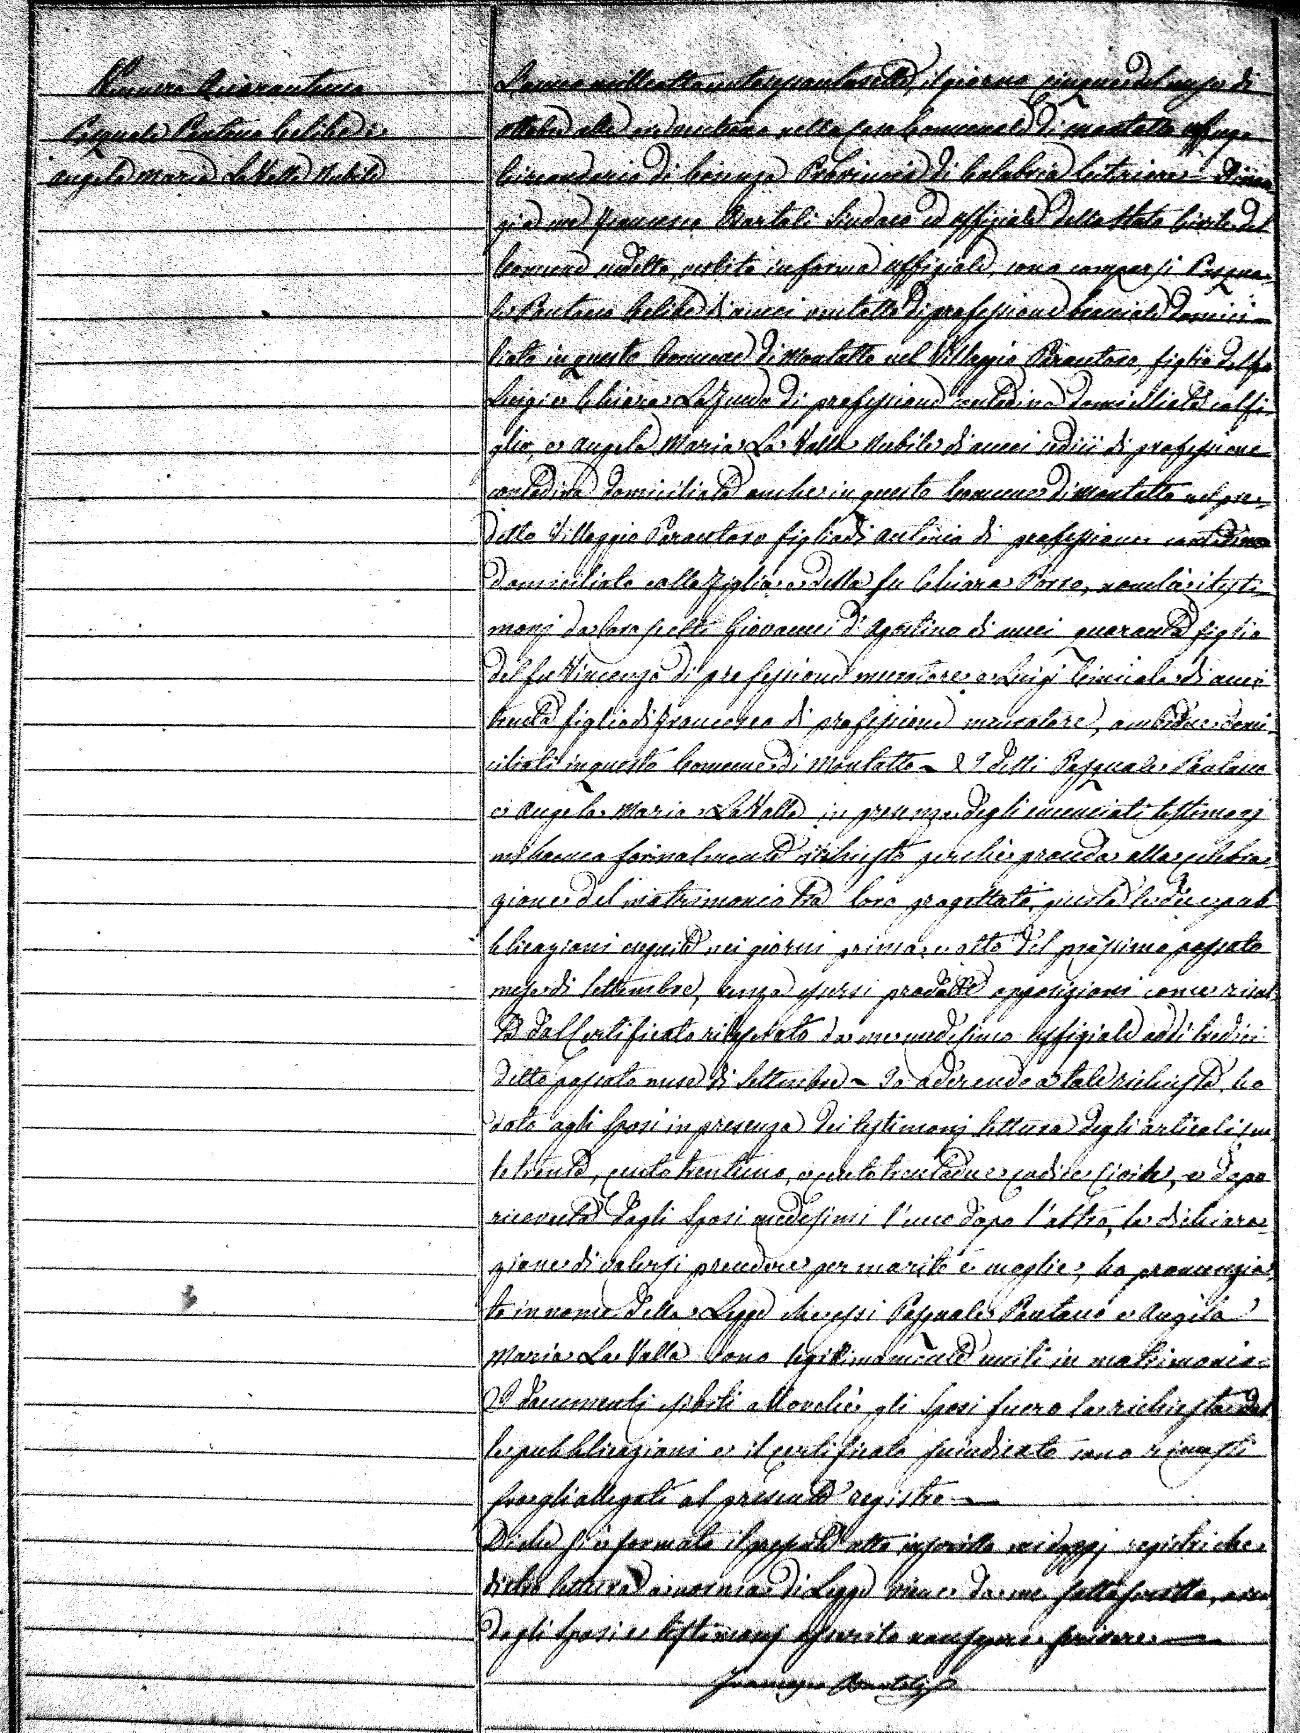 Numero Quarantuno
Pasquale Pantano Celibe, e
Angela Maria La Valle Nubile
L'anno mille ottocento sessantasette, il giorno cinque del mese di
Ottobre alle ore ventuna nella Casa Comunale di Montalto Uffugo
Circondario di Cosenza Provincia di Calabria Citeriore - Dinan-
zi a me Francesco Bartoli Sindaco ed uffiziale dello Stato Civile del
Comune suddetto, vestito in forma uffiziale, sono comparsi Pasqua-
le Pantano Celibe di anni ventotto di professione bracciale domici-
liato in questo Comune di Montalto nel Villaggio Parantoro, figlio del fu
Luigi e Chiara di professione contadina domiciliata col fi-
glio, e Angela Maria La Valle Nubile di anni sedici di professione
contadina domiciliata anche in questo Comune di Montalto nel pre-
detto Villaggio Parantoro figlia di Antonio di professione contadino
domiciliato colla figlia e della fu Chiara Porro, nonchè i testi-
monj da loro scelti Giovanni d'Agostino di anni quaranta figlio
del fu Vincenzo di professione muratore e Luigi di anni
trenta figlio di Francesco di professione muratore, ambidue domi-
ciliati in questo Comune di Montalto - I detti Pasquale Pantano
e Angela Maria La Valle in presenza degli enunciati testimonj
mi hanno formalmente richiesto perchè proceda alla celebra-
zione del matrimonio tra loro progettato, giusta le due pub-
blicazioni eseguite nei giorni primo e otto del prossimo passato
mese di Settembre, senza essersi prodotte opposizioni come risul-
ta dal Certificato rilasciato da me medesimo uffiziale addì tredici
detto passato mese di Settembre - Io aderendo a tale richiesta, ho
dato agli Sposi in presenza dei testimonj lettura degli articoli cen-
to trenta, cento trentuno, e cento trentadue codice Civile, e dopo
ricevuta dagli Sposi medesimi l'uno dopo l'altro, la dichiara-
zione di volersi prendere per marito e moglie, ho pronunzia-
to in nome della Legge che essi Pasquale Pantano e Angela
Maria La Valle sono legittimamente uniti in matrimonio -
I documenti esibiti allorchè gli Sposi fecero la richiesta del-
le pubblicazioni e il certificato suindicato sono rimasti
fra gli allegati al presente registro -
Di che si è formato il presente atto inscritto nei doppj registri che
dietro lettura a norma di Legge viene da me sottoscritto, avendo
degli Sposi e testimonj asserito non sapere scrivere -
Francesco Bartoli